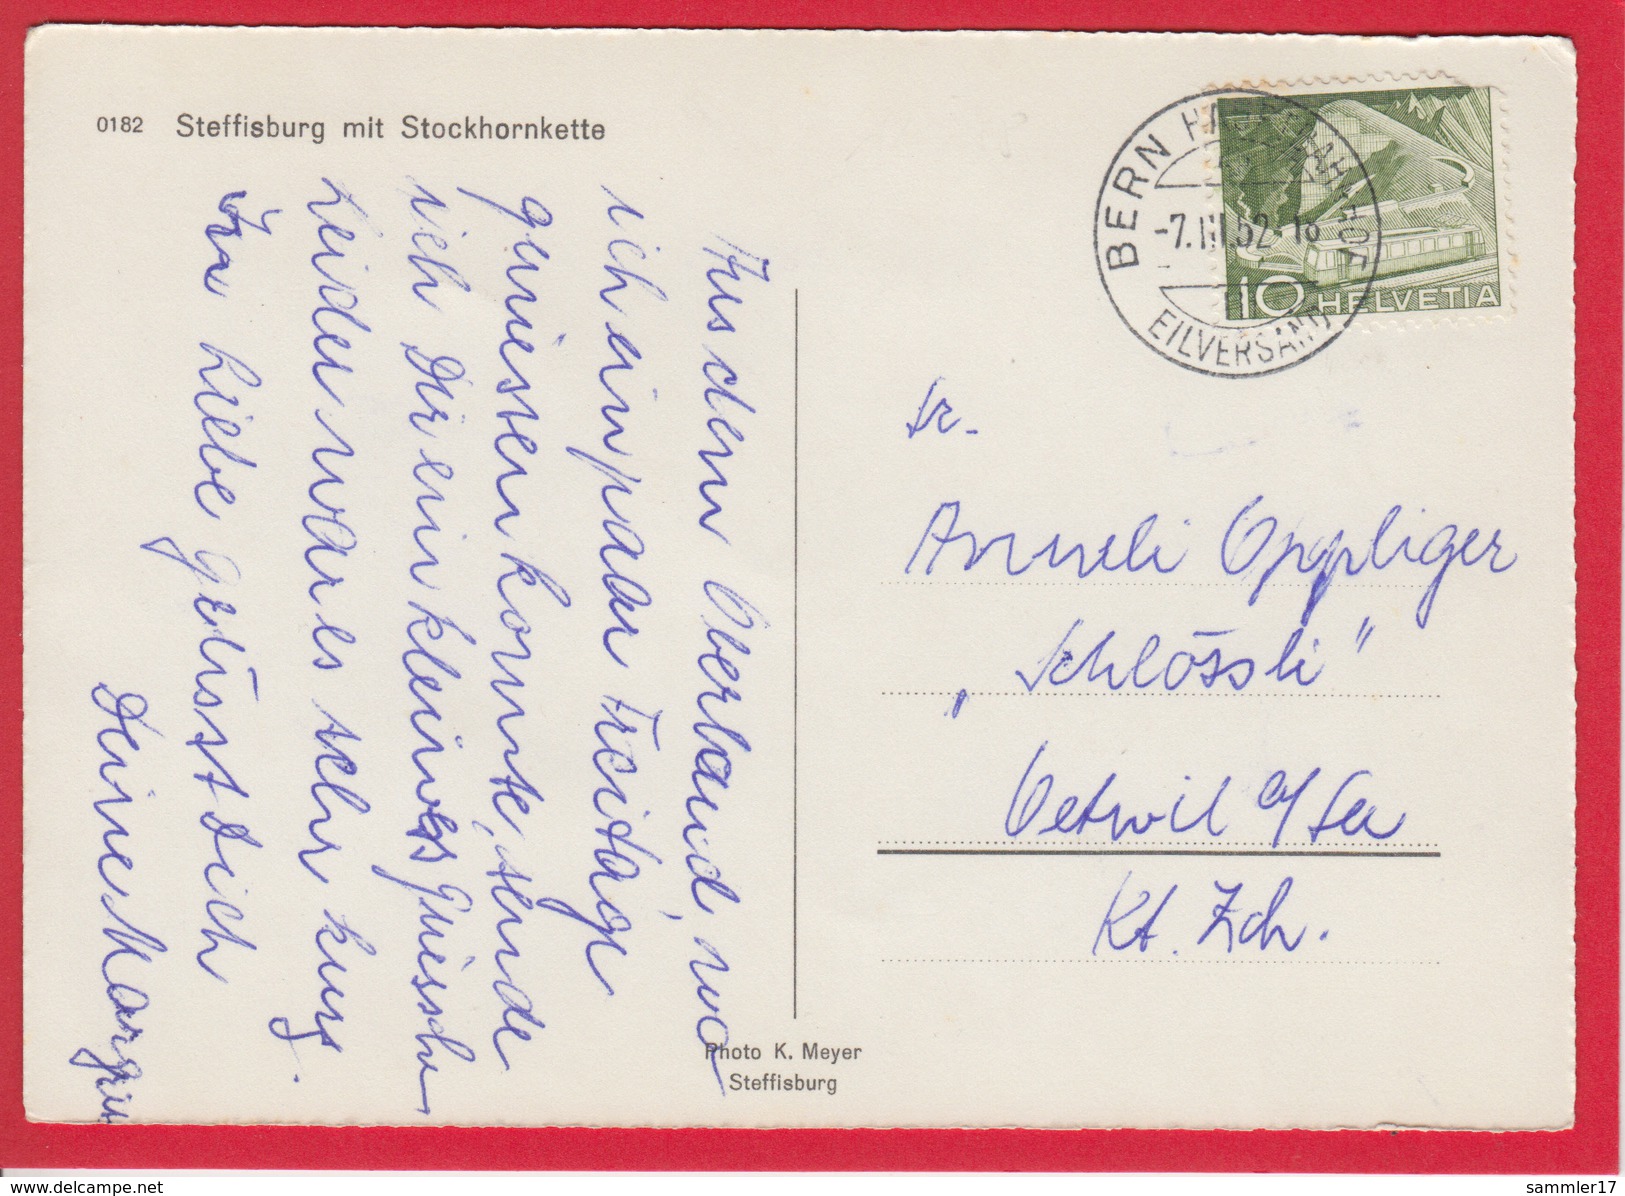 0182 Steffisburg mit Stockhornkette
BERN HAUPTBAHNHOF
-7.III.52-18
EILVERSAND
10 HELVETIA
Aus dem Oberland, wo
ich ein paar Freitäge
geniessen konnte, sende
ich Dir ein kleines Grüsschen
Leider war es sehr kurz.
In Liebe grüsst Dich
Deine Margrit
Fr.
Anneli Oppliger
„Schlössli"
Oetwil a/See
Kt. Zch.
Photo K. Meyer
Steffisburg
www.delcampe.net
sammler17